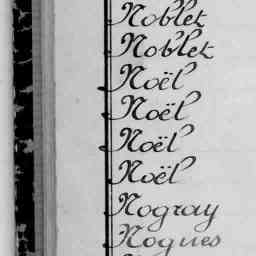 Noblet
Noblet
Noël
Noël
Noël
Noël
Nogray
Nogues